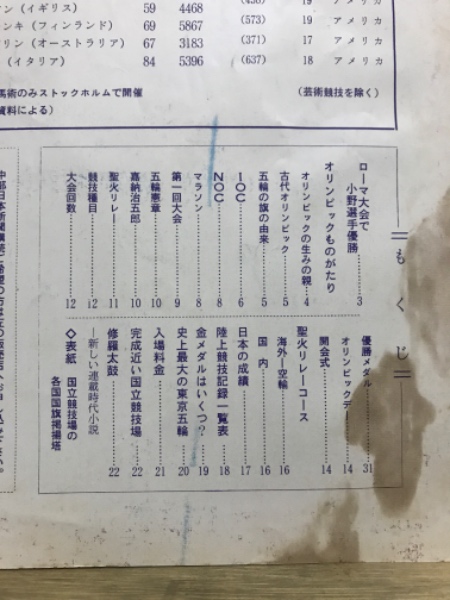 (イギリス) 59 4468 19 アメリカ
ンキ (フィンランド) 69 5867 (573) 19 アメリカ
リン (オーストラリア) 67 3183 (371) 17 アメリカ
(イタリア) 84 5396 (637) 18 アメリカ
馬術のみストックホルムで開催 (芸術競技を除く)
資料による)
もくじ
ローマ大会で
小野選手優勝 3
オリンピックものがたり
オリンピックの生みの親 4
古代オリンピック 5
五輪の旗の由来 5
IOC 6
NOC 8
マラソン 8
第一回大会 9
五輪憲章 10
嘉納治五郎 10
聖火リレー 11
競技種目 12
大会回数 12
優勝メダル 31
オリンピックデー 14
開会式 14
聖火リレーコース
海外―空輪 16
国内 16
日本の成績 17
陸上競技記録一覧表 18
金メダルはいくつ? 19
史上最大の東京五輪 20
入場料金 21
完成近い国立競技場 22
修羅太鼓 22
―新しい連載時代小説
◇表紙 国立競技場の
各国国旗掲揚塔